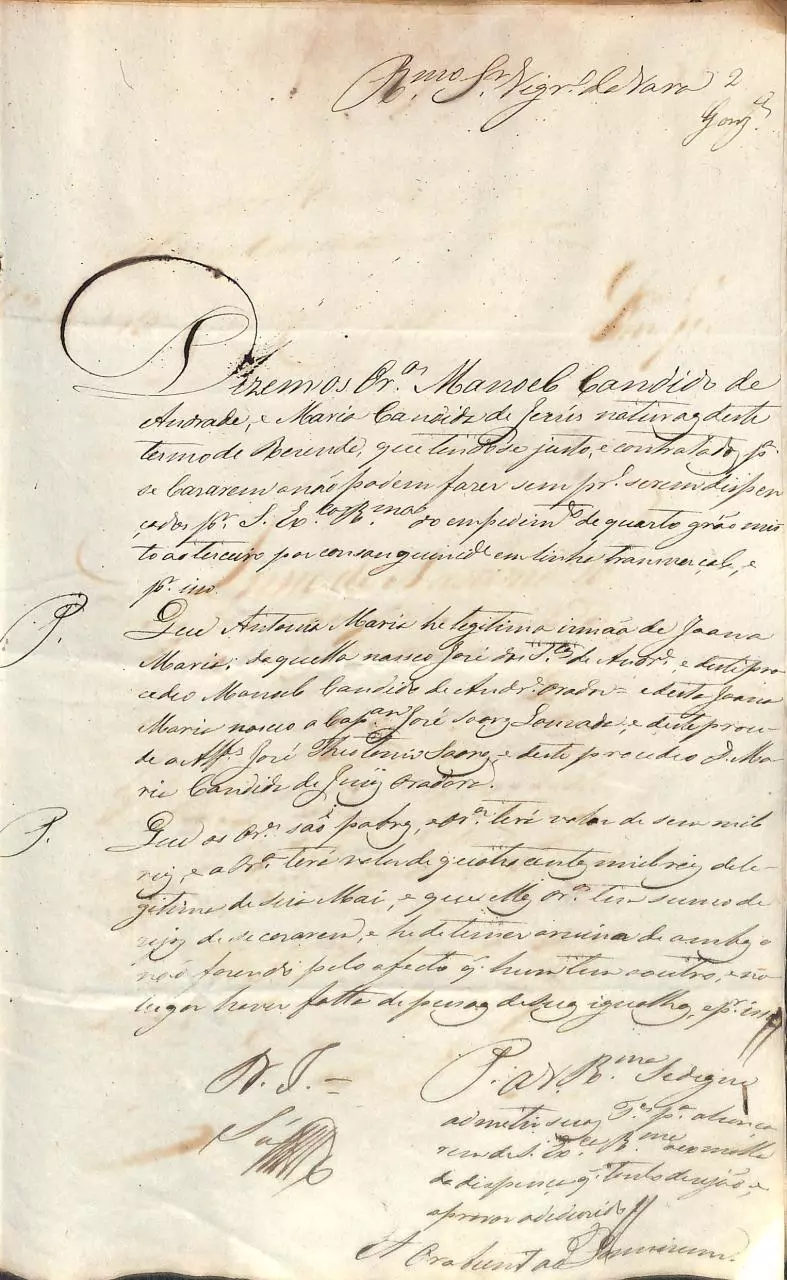 R.mo Sr. Vigr.o da Vara 2
Dizem os Or.es Manoel Candido de
Andrade, e Maria Candida de Jesus naturaes deste
termo de Rezende, que tendo se justo, e contratado p.a
se Cazarem o não podem fazer sem pr.o serem dispen
çados p.r S. Ex.cia R.ma do empedim.to de quarto gráo mis
to ao terceiro por consanguinid.e em linha transverçal, e
p.r iso.
P. Que Antonia Maria he legitima irmãa de Joana
Maria; daquella nasceo José dos S.tos de Andr.e e deste pro
cedeo Manoel Candido de Andr.e orador = e desta Joana
Maria nasceo o Cap.am José Soares Louzada, e deste proce-
de o Alf.s José Theotonio Soares, e deste procedeo D. Ma
ria Candida de Jesus Oradora.
P. Que os Or.es são pobres, e o Or.or terá valor de cem mil
reis, e a Or.a terá valor de quatro centos mil reis de le
gitima de sua Mai, e que os Or.es tem sumo de
zejos de se cazarem, e he de temer a ruina de ambos o
não fazendo pelo afecto q. hum tem ao outro, e no
lugar haver falta de pesoas de suas igualhas, e p.r isso
P. a V. R.ma Se digne
admetir suas T.as p.a alcança
rem de S. Ex.cia R.ma
da dispença q. tanto dezejão, e
aprovar o deduzido
N. J. =
Sá
Orabunt ad Dominum.